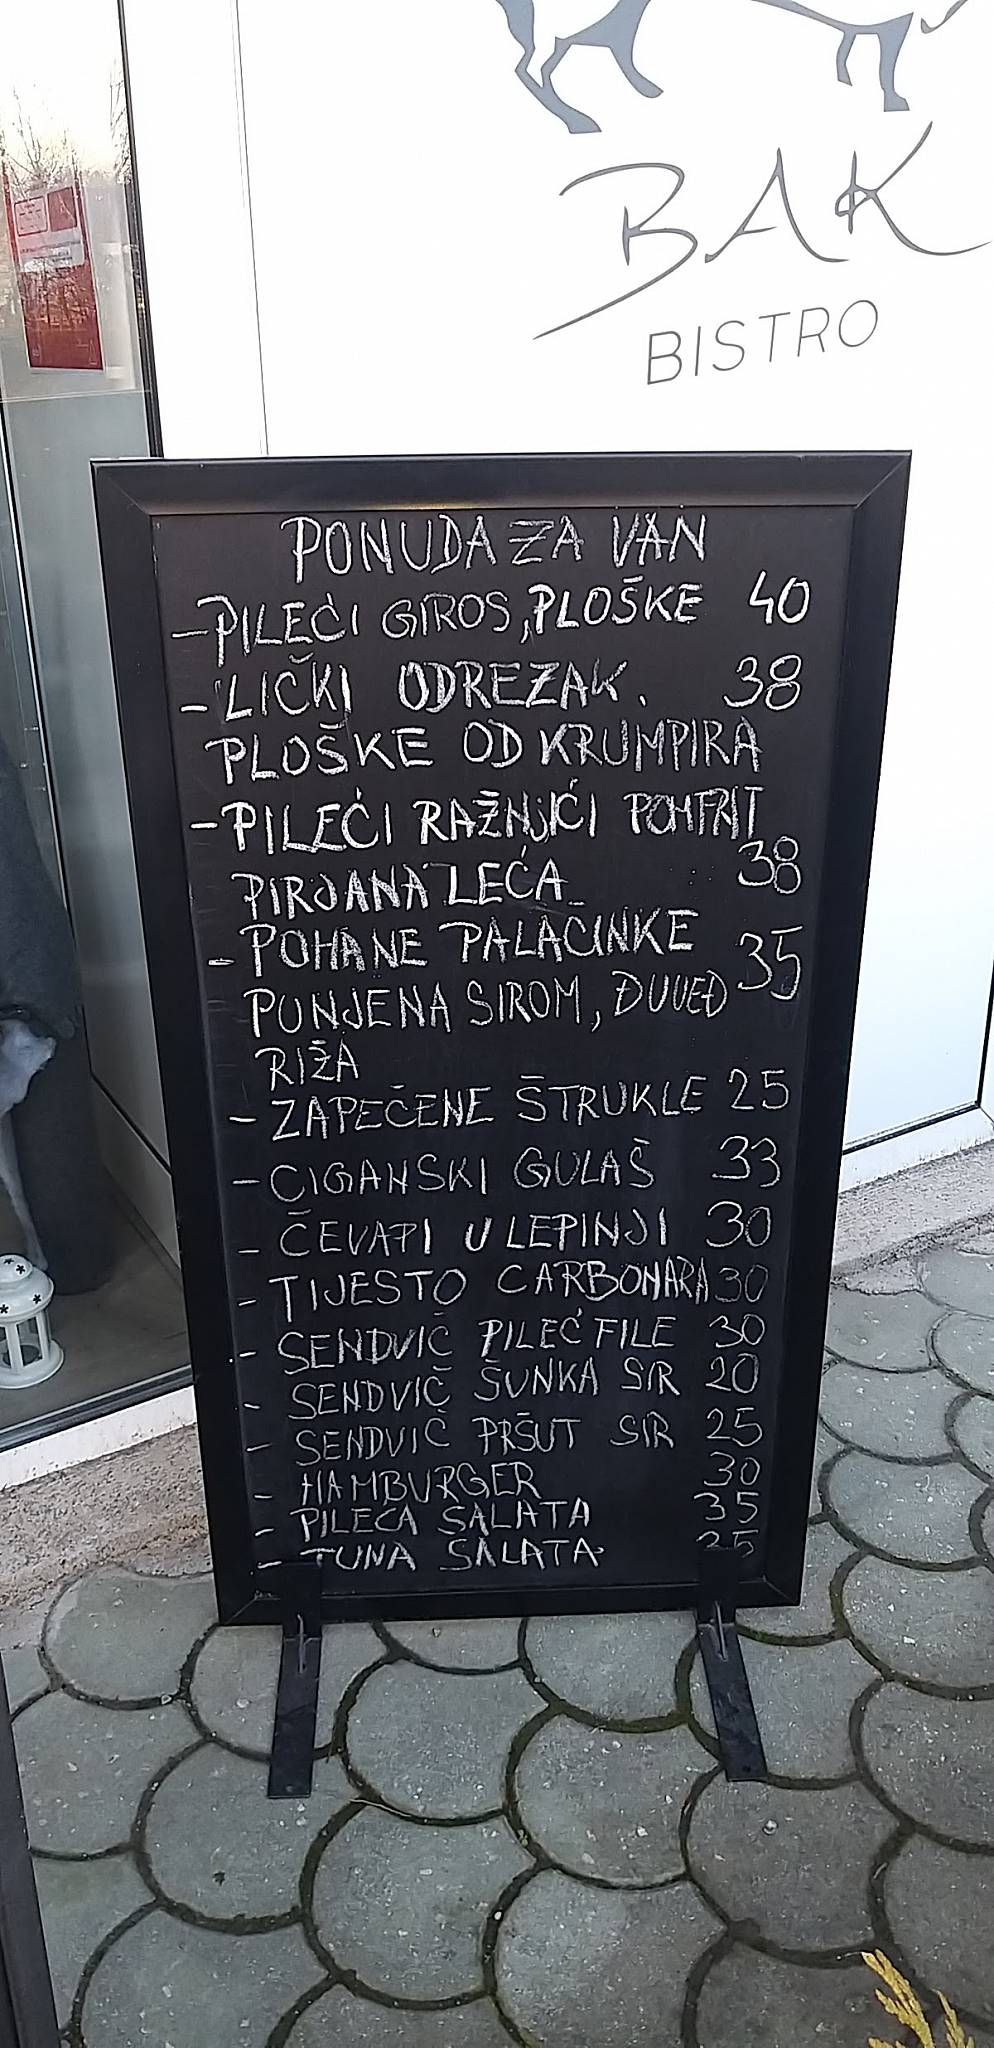 BAK
BISTRO
PONUDA ZA VAN
-PILEĆI GIROS, PLOŠKE 40
-LIČKI ODREZAK. 38
PLOŠKE OD KRUMPIRA
-PILEĆI RAŽNJIĆI POMFRIT
PIRJANA LEĆA 38
- POHANE PALAČINKE 35
PUNJENA SIROM, ĐUVEĐ
RIŽA
- ZAPEČENE ŠTRUKLE 25
- CIGANSKI GULAŠ 33
- ČEVAPI U LEPINJI 30
- TIJESTO CARBONARA 30
- SENDVIČ PILEĆ FILE 30
- SENDVIČ ŠUNKA SIR 20
- SENDVIČ PRŠUT SIR 25
- HAMBURGER 30
- PILEĆA SALATA 35
- TUNA SALATA 35